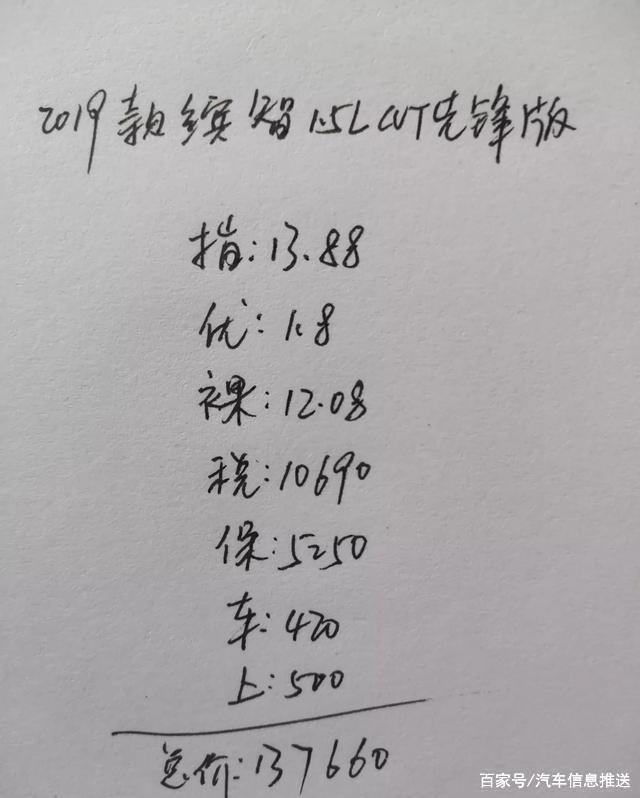 2019款缤智1.5L CVT先锋版
指:13.88
优:1.8
裸:12.08
税:10690
保:5250
车:420
上:500
总价:137660
百家号/汽车信息推送